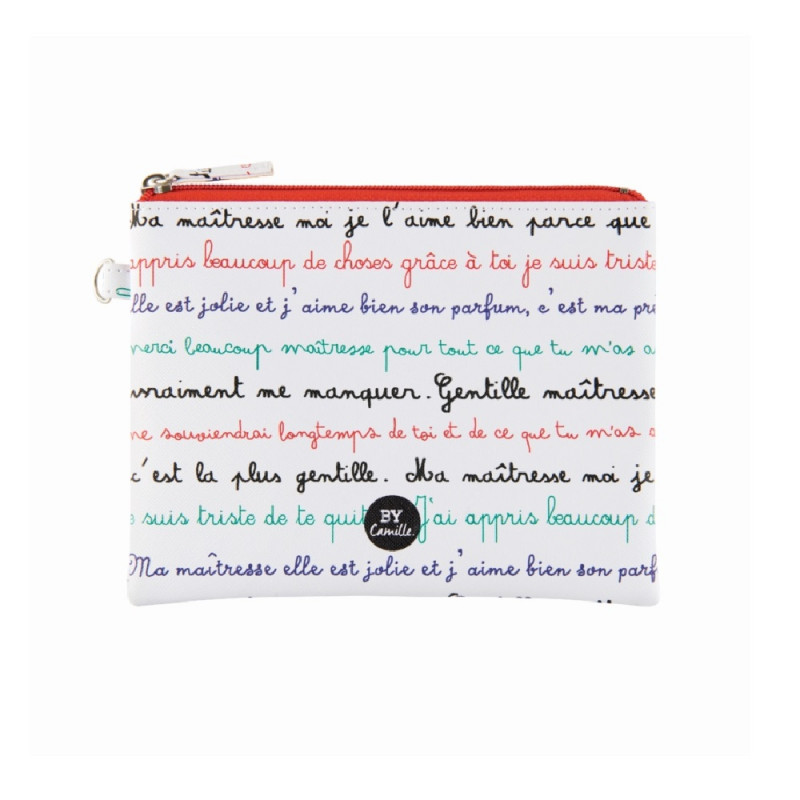 Ma maîtresse moi je l'aime bien parce que
appris beaucoup de choses grâce à toi je suis triste
lle est jolie et j'aime bien son parfum, c'est ma pré
merci beaucoup maîtresse pour tout ce que tu m'as a
vraiment me manquer. Gentille maîtresse
me souviendrai longtemps de toi et de ce que tu m'as a
c'est la plus gentille. Ma maîtresse moi je
e suis triste de te quit J'ai appris beaucoup d
BY
Camille.
Ma maîtresse elle est jolie et j'aime bien son parf